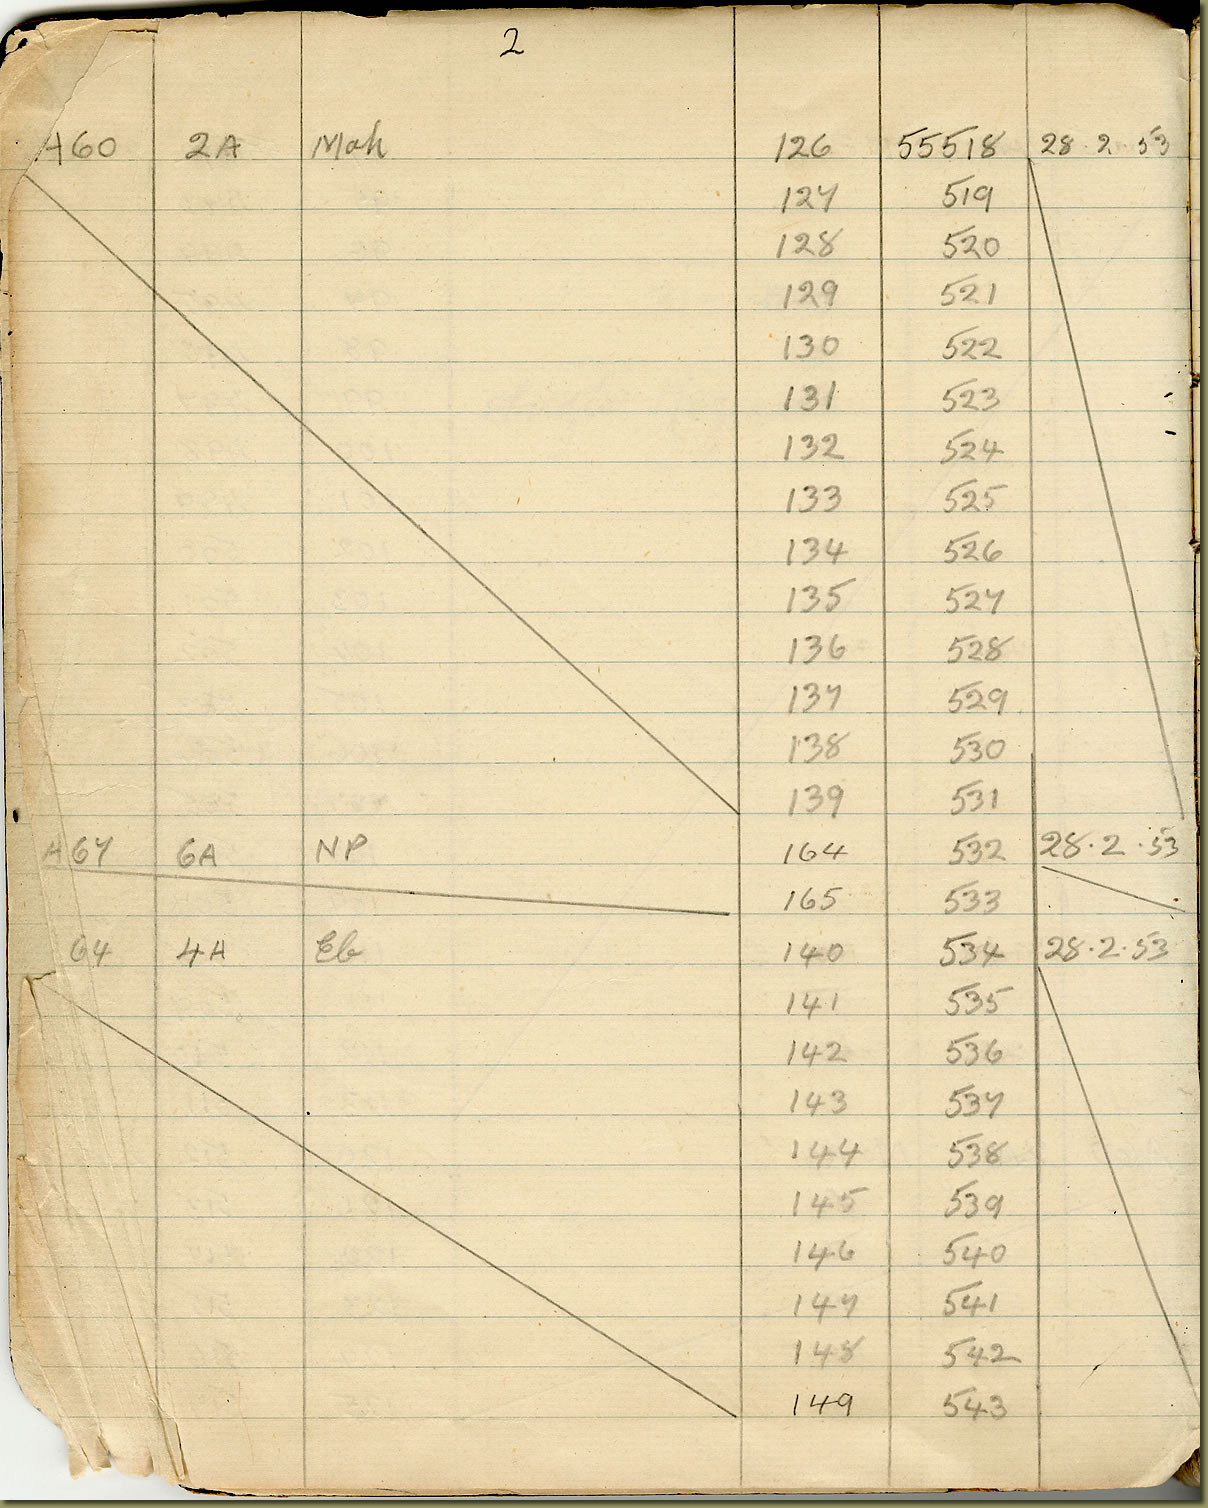 2
A60 2A Mah 126 55518 28.2.53
127 519
128 520
129 521
130 522
131 523
132 524
133 525
134 526
135 527
136 528
137 529
138 530
139 531
A67 6A NP 164 532 28.2.53
165 533
64 4A Eb 140 534 28.2.53
141 535
142 536
143 537
144 538
145 539
146 540
147 541
148 542
149 543